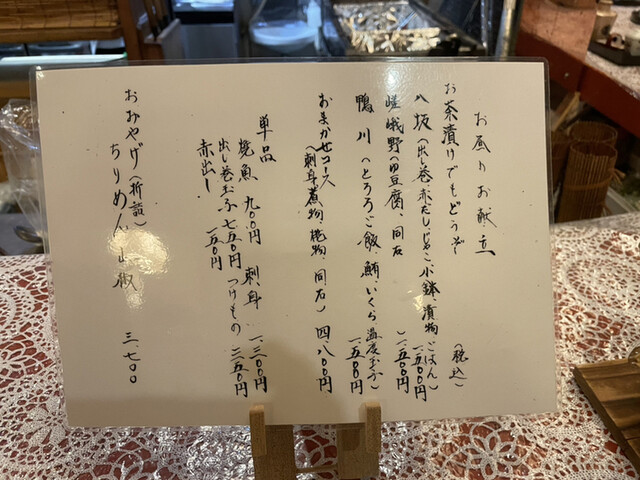 お昼のお献立
お茶漬けでもどうぞ
(税込)
八坂(出し巻、赤だし、じゃこ、小鉢、漬物、ごはん)
一五〇〇円
嵯峨野(田豆腐、同右)
一五〇〇円
鴨川(とろろご飯、鮪、いくら、温度玉子)
一五〇〇円
おまかせコース
(刺身、煮物、焼物、同右)四八〇〇円
単品
焼魚 九〇〇円 刺身 一三〇〇円
出し巻玉子 七五〇円 つけもの 三五〇円
赤出し 一五〇円
おみやげ(折詰)
ちりめん山椒 三七〇〇